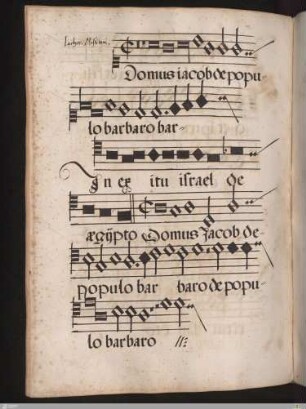 Domus iacob de popu-
lo barbaro bar-
In ex itu israel de
ægÿpto Domus Jacob de
populo bar baro de popu-
lo barbaro